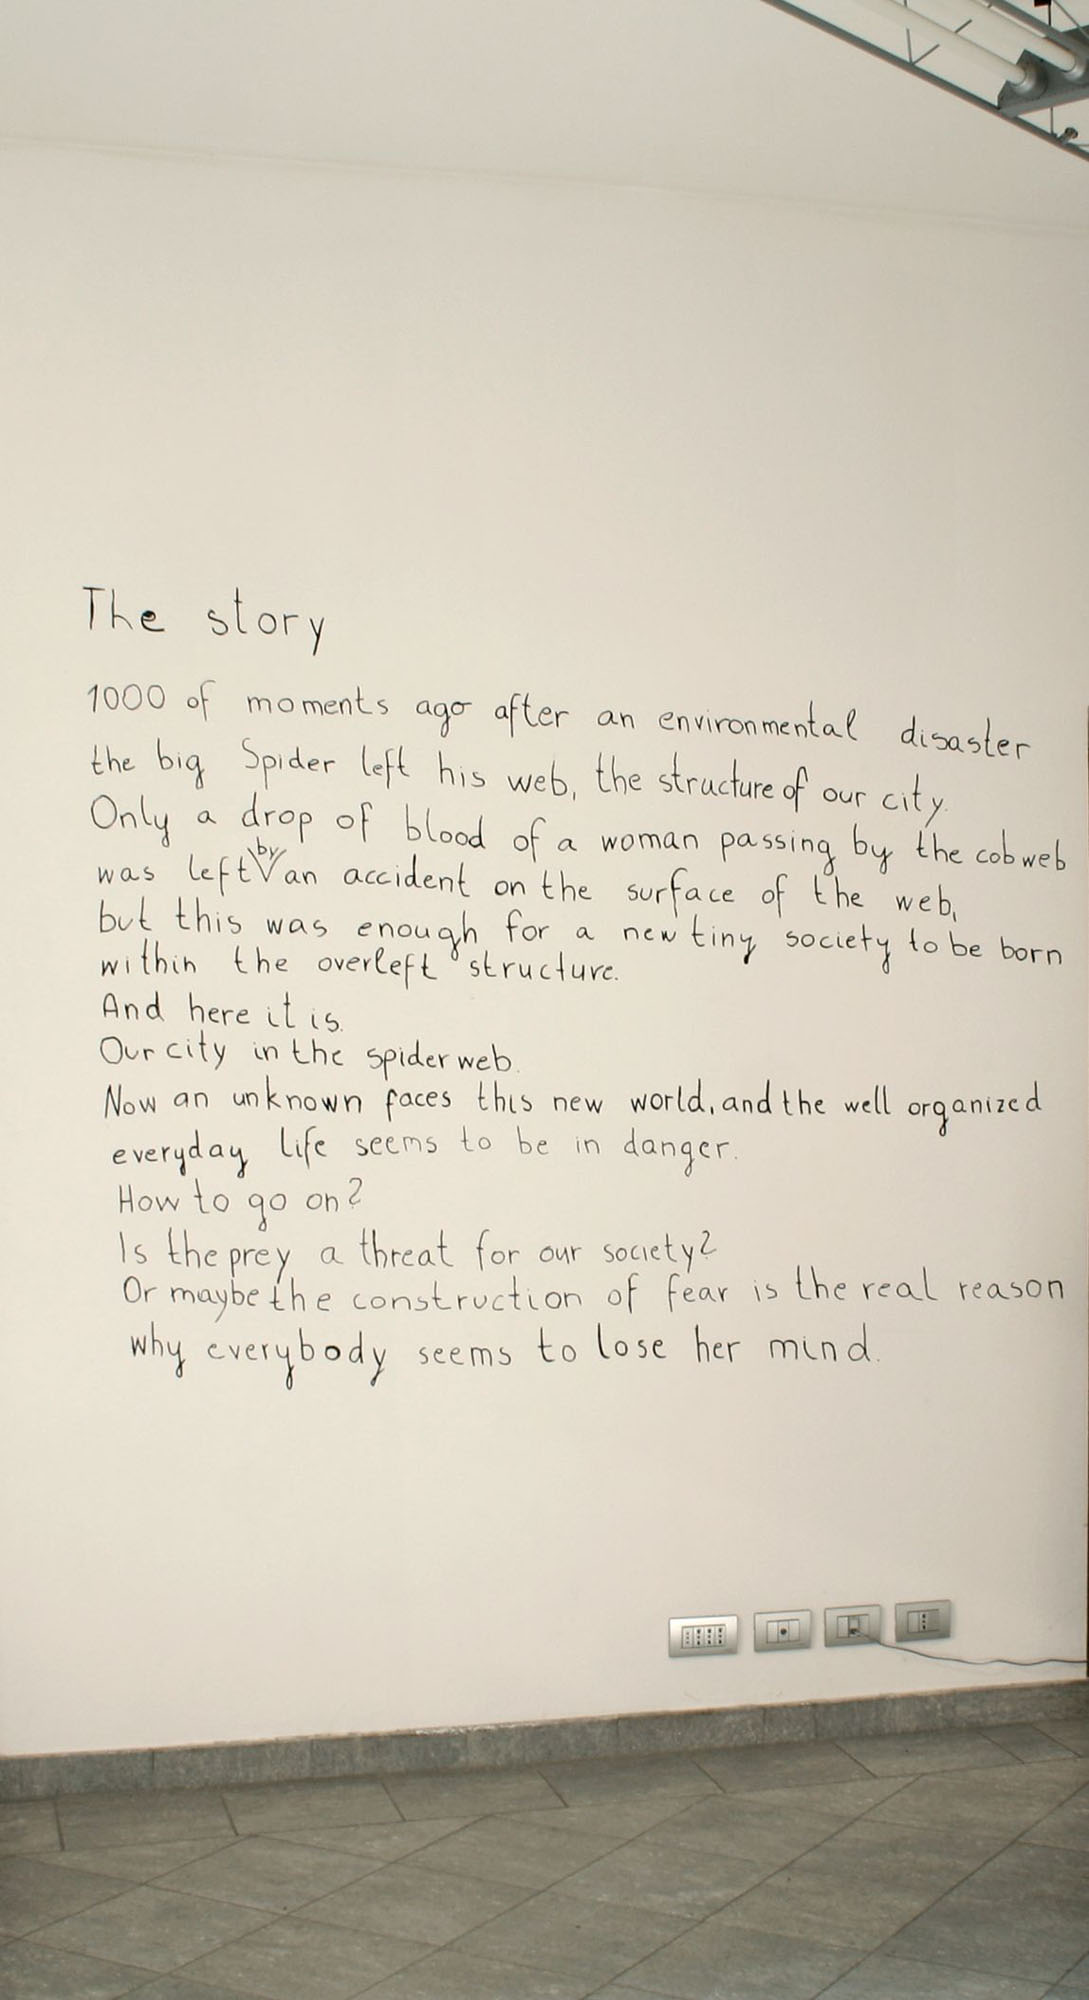 The story
1000 of moments ago after an environmental disaster
the big Spider left his web, the structure of our city.
Only a drop of blood of a woman passing by the cobweb
was left by an accident on the surface of the web,
but this was enough for a new tiny society to be born
within the overleft structure.
And here it is.
Our city in the spiderweb.
Now an unknown faces this new world, and the well organized
everyday life seems to be in danger.
How to go on?
Is the prey a threat for our society?
Or maybe the construction of fear is the real reason
why everybody seems to lose her mind.